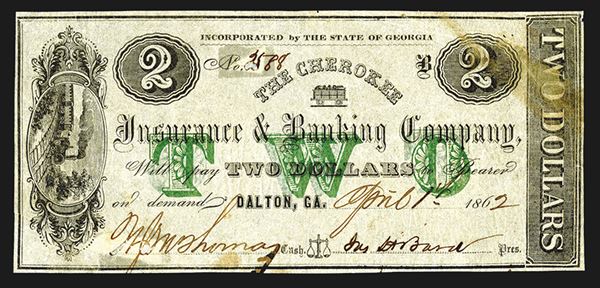 INCORPORATED by THE STATE OF GEORGIA
2 No. 3588 B 2
THE CHEROKEE
Insurance & Banking Company,
TWO
Will pay TWO DOLLARS to Bearer
on demand DALTON, GA. April 1st 1862
Cash. Pres.
TWO DOLLARS